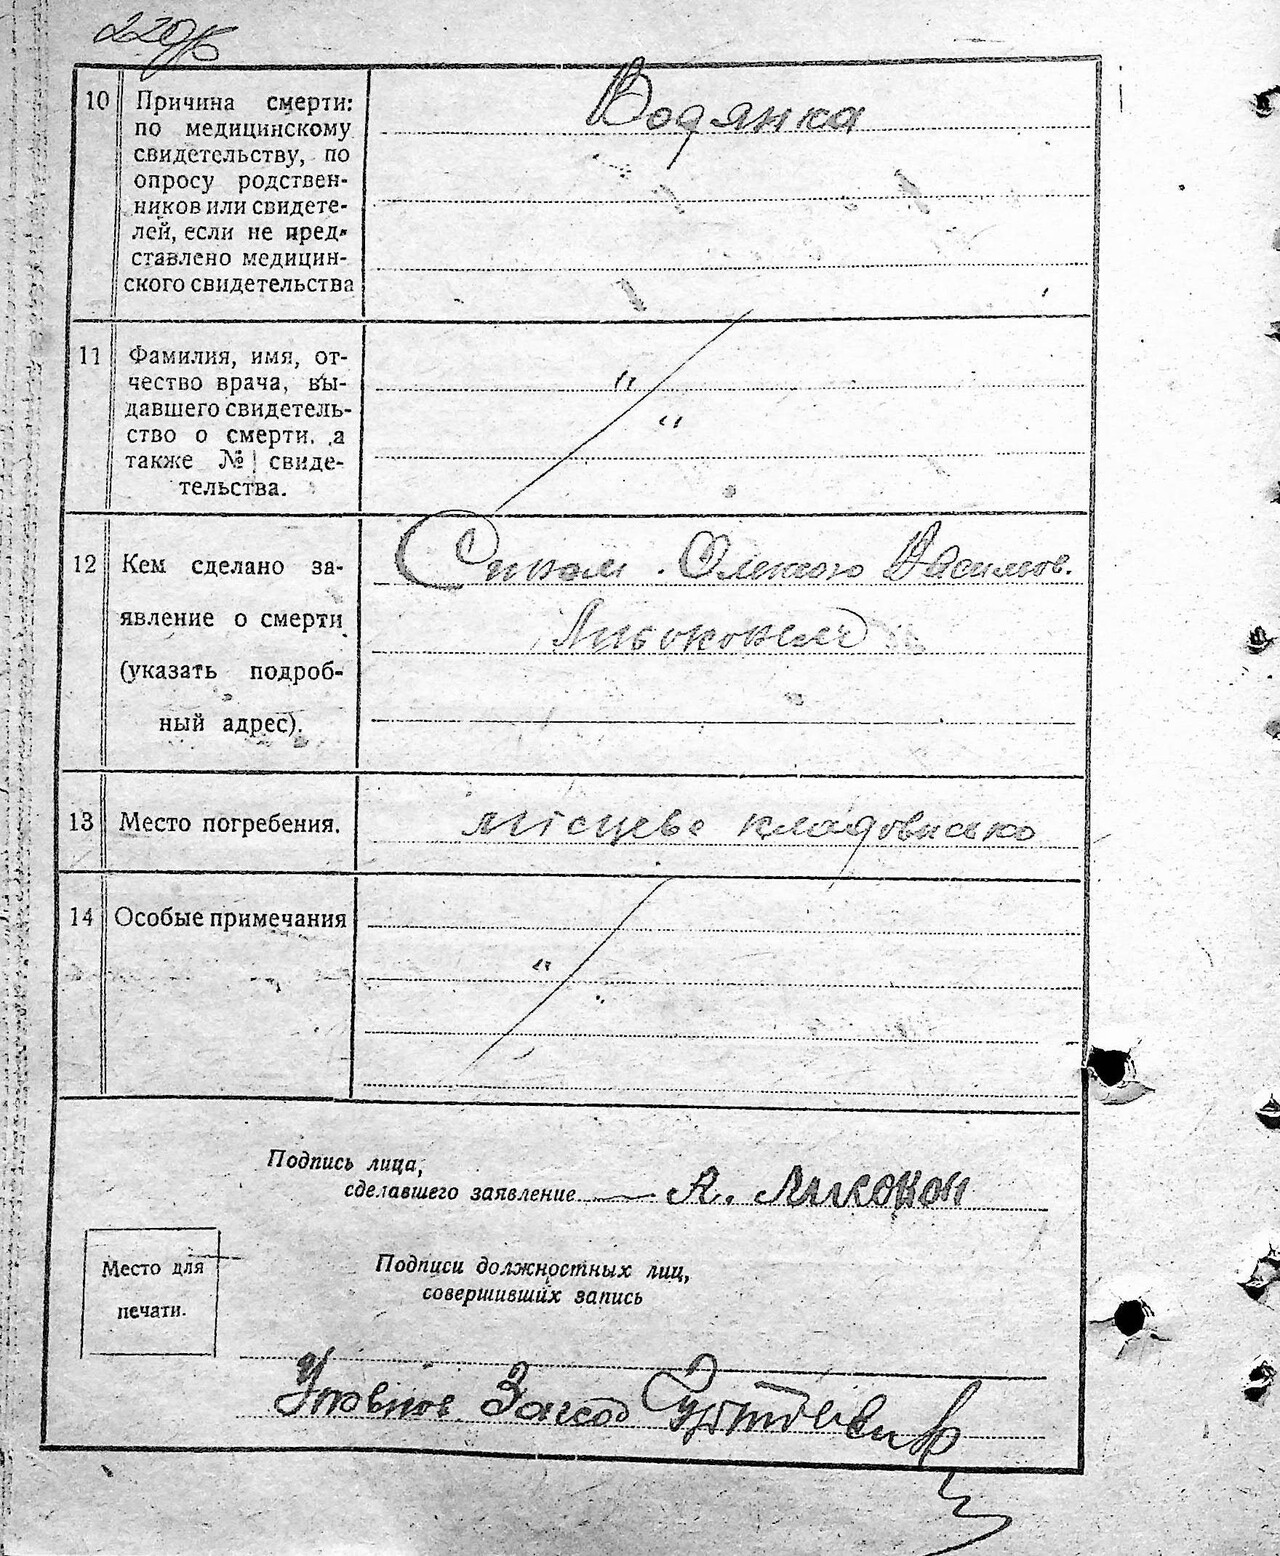 220
10 Причина смерти:
по медицинскому
свидетельству, по
опросу родствен-
ников или свидете-
лей, если не пред-
ставлено медицин-
ского свидетельства
Водянка
11 Фамилия, имя, от-
чество врача, вы-
давшего свидетель-
ство о смерти, а
также № свиде-
тельства.
"
"
12 Кем сделано за-
явление о смерти
(указать подроб-
ный адрес).
Сином
13 Место погребения.
місцеве кладовисько
14 Особые примечания
"
"
Подпись лица,
сделавшего заявление А. Лисокон
Место для
печати.
Подписи должностных лиц,
совершивших запись